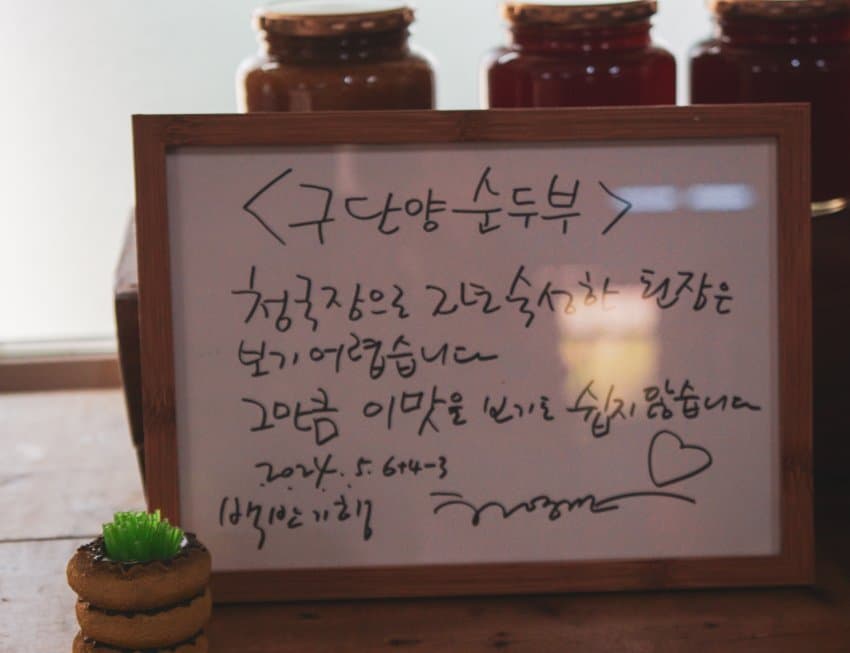 <구단양 순두부>
청국장으로 2년 숙성한 된장은
보기 어렵습니다
그만큼 이맛을 보기도 쉽지 않습니다
2024. 5. 6+4-3
백반기행